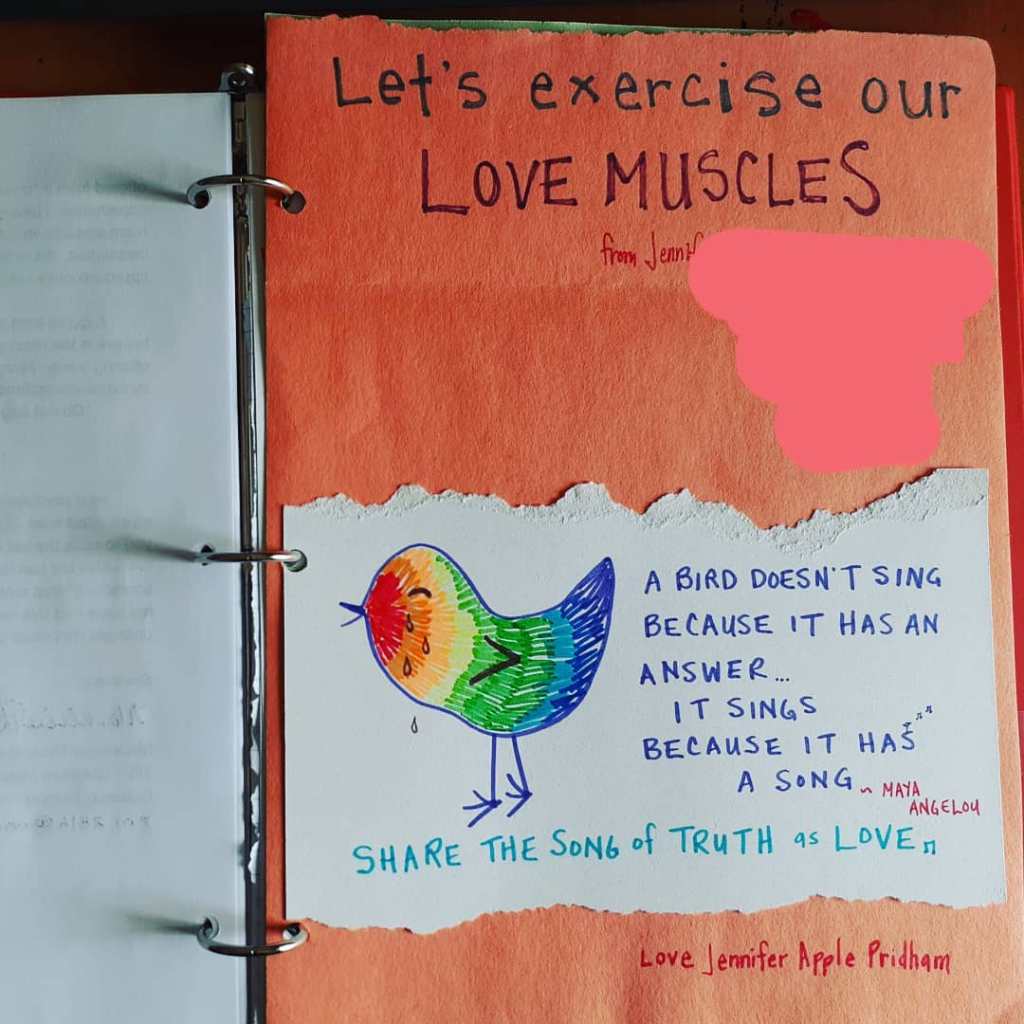 Let's exercise our
LOVE MUSCLES
from
A BIRD DOESN'T SING
BECAUSE IT HAS AN
ANSWER...
IT SINGS
BECAUSE IT HAS
A SONG ~ MAYA
ANGELOU
SHARE THE SONG of TRUTH as LOVE
Love Jennifer Apple Pridham